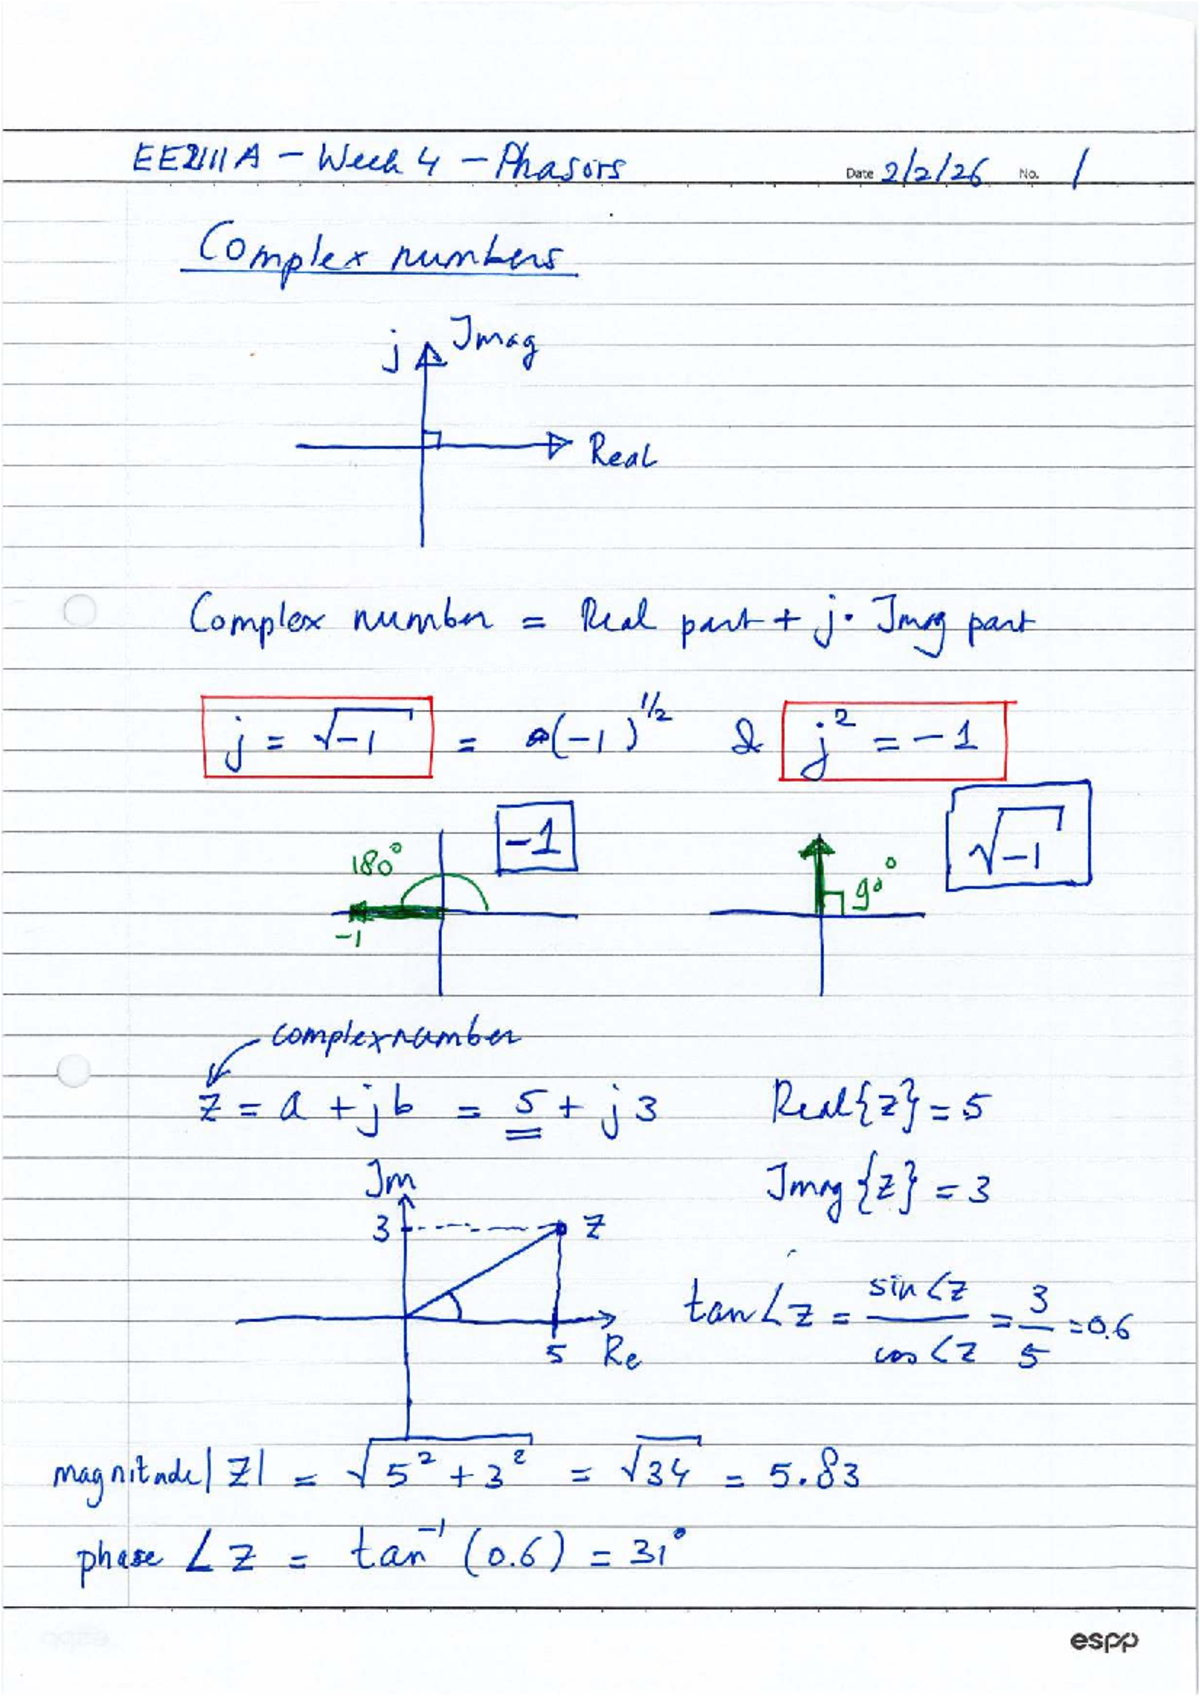 EE2111A - Week 4 - Phasors
Date 2/2/26 No. 1
Complex numbers
j Imag
Real
Complex number = Real part + j· Imag part
j = √-1 = (-1)^1/2 & j² = -1
-1 √-1
180° 90°
-1
complex number
z = a + jb = 5 + j3 Real{z} = 5
Im Imag{z} = 3
3 z
tan∠z = sin∠z / cos∠z = 3/5 = 0.6
5 Re
magnitude |z| = √5² + 3² = √34 = 5.83
phase ∠z = tan⁻¹(0.6) = 31°
espp